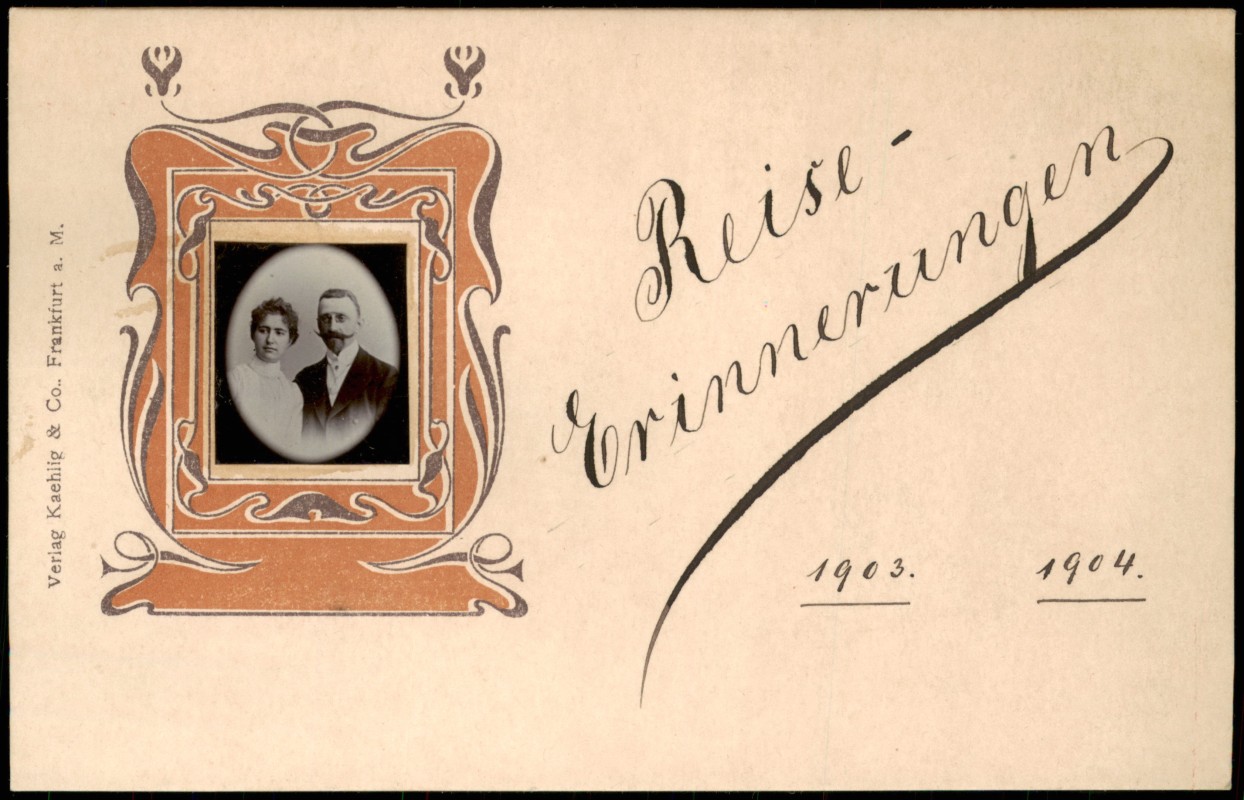 Verlag Kaehlig & Co., Frankfurt a. M.
Reise-
Erinnerungen
1903. 1904.